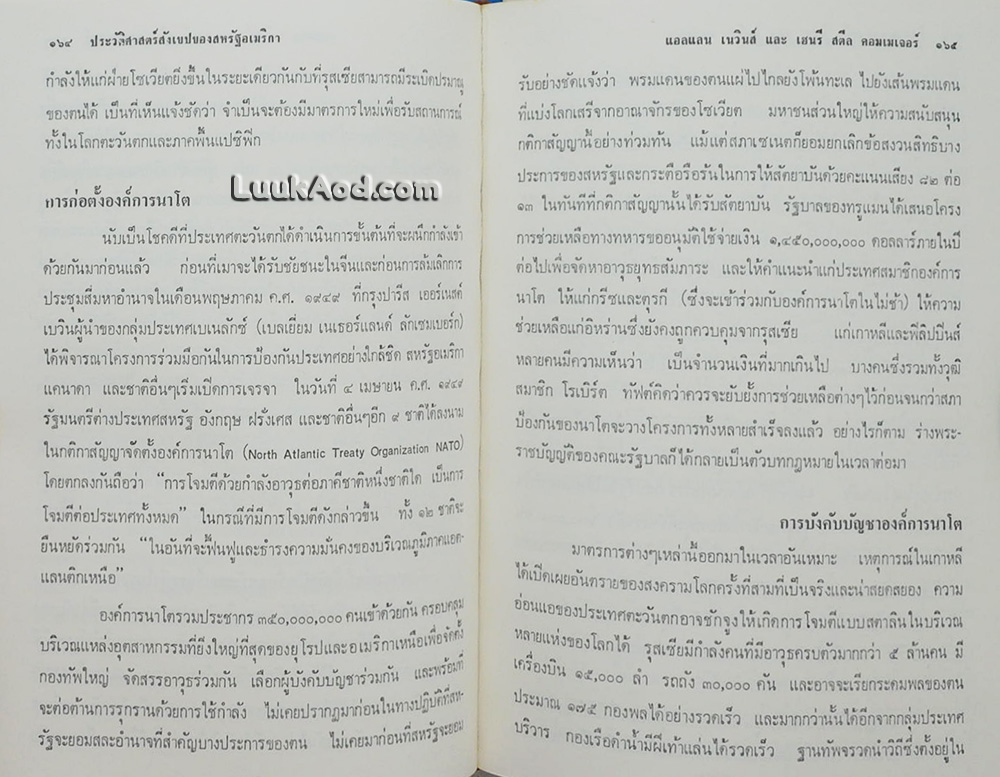 ๑๖๔ ประวัติศาสตร์สังเขปของสหรัฐอเมริกา
กำลังให้แก่ฝ่ายโซเวียตยิ่งขึ้นในระยะเดียวกันกับที่รุสเซียสามารถมีระเบิดปรมาณู
ของตนได้ เป็นที่เห็นแจ้งชัดว่า จำเป็นจะต้องมีมาตรการใหม่เพื่อรับสถานการณ์
ทั้งในโลกตะวันตกและภาคพื้นแปซิฟิก
LuukAod.com
การก่อตั้งองค์การนาโต
นับเป็นโชคดีที่ประเทศตะวันตกได้ดำเนินการขั้นต้นที่จะผนึกกำลังเข้า
ด้วยกันมาก่อนแล้ว ก่อนที่เมาจะได้รับชัยชนะในจีนและก่อนการล้มเลิกการ
ประชุมสี่มหาอำนาจในเดือนพฤษภาคม ค.ศ. ๑๙๔๙ ที่กรุงปารีส เออร์เนสต์
เบวินผู้นำของกลุ่มประเทศเบเนลักซ์ (เบลเยี่ยม เนเธอร์แลนด์ ลักเซมเบอร์ก)
ได้พิจารณาโครงการร่วมมือกันในการป้องกันประเทศอย่างใกล้ชิด สหรัฐอเมริกา
แคนาดา และชาติอื่นๆเริ่มเปิดการเจรจา ในวันที่ ๔ เมษายน ค.ศ. ๑๙๔๙
รัฐมนตรีต่างประเทศสหรัฐ อังกฤษ ฝรั่งเศส และชาติอื่นๆอีก ๙ ชาติได้ลงนาม
ในกติกาสัญญาจัดตั้งองค์การนาโต (North Atlantic Treaty Organization NATO)
โดยตกลงกันถือว่า “การโจมตีด้วยกำลังอาวุธต่อภาคีชาติหนึ่งชาติใด เป็นการ
โจมตีต่อประเทศทั้งหมด” ในกรณีที่มีการโจมตีดังกล่าวขึ้น ทั้ง ๑๒ ชาติจะ
ยืนหยัดร่วมกัน “ในอันที่จะฟื้นฟูและธำรงความมั่นคงของบริเวณภูมิภาคแอต-
แลนติกเหนือ”
องค์การนาโตรวมประชากร ๓๕๐,๐๐๐,๐๐๐ คนเข้าด้วยกัน ครอบคลุม
บริเวณแหล่งอุตสาหกรรมที่ยิ่งใหญ่ที่สุดของยุโรปและอเมริกาเหนือเพื่อจัดตั้ง
กองทัพใหญ่ จัดสรรอาวุธร่วมกัน เลือกผู้บังคับบัญชาร่วมกัน และพร้อมที่
จะต่อต้านการรุกรานด้วยการใช้กำลัง ไม่เคยปรากฏมาก่อนในทางปฏิบัติที่สห-
รัฐจะยอมสละอำนาจที่สำคัญบางประการของตน ไม่เคยมาก่อนที่สหรัฐจะยอม
แอลแลน เนวินส์ และ เฮนรี สตีล คอมเมเจอร์ ๑๖๕
รับอย่างชัดแจ้งว่า พรมแดนของตนแผ่ไปไกลยังโพ้นทะเล ไปยังเส้นพรมแดน
ที่แบ่งโลกเสรีจากอาณาจักรของโซเวียต มหาชนส่วนใหญ่ให้ความสนับสนุน
กติกาสัญญานี้อย่างท่วมท้น แม้แต่สภาเซเนตก็ยอมยกเลิกข้อสงวนสิทธิบาง
ประการของสหรัฐและกระตือรือร้นในการให้สัตยาบันด้วยคะแนนเสียง ๘๒ ต่อ
๑๓ ในทันทีที่กติกาสัญญานั้นได้รับสัตยาบัน รัฐบาลของทรูแมนได้เสนอโครง
การช่วยเหลือทางทหารขออนุมัติใช้จ่ายเงิน ๑,๔๕๐,๐๐๐,๐๐๐ ดอลลาร์ภายในปี
ต่อไปเพื่อจัดหาอาวุธยุทธสัมภาระ และให้คำแนะนำแก่ประเทศสมาชิกองค์การ
นาโต ให้แก่กรีซและตุรกี (ซึ่งจะเข้าร่วมกับองค์การนาโตในไม่ช้า) ให้ความ
ช่วยเหลือแก่อิหร่านซึ่งยังคงถูกควบคุมจากรุสเซีย แก่เกาหลีและฟิลิปปินส์
หลายคนมีความเห็นว่า เป็นจำนวนเงินที่มากเกินไป บางคนซึ่งรวมทั้งวุฒิ
สมาชิก โรเบิร์ต ทัฟต์คิดว่าควรจะยับยั้งการช่วยเหลือต่างๆไว้ก่อนจนกว่าสภา
ป้องกันของนาโตจะวางโครงการทั้งหลายสำเร็จลงแล้ว อย่างไรก็ตาม ร่างพระ-
ราชบัญญัติของคณะรัฐบาลก็ได้กลายเป็นตัวบทกฎหมายในเวลาต่อมา
การบังคับบัญชาองค์การนาโต
มาตรการต่างๆเหล่านี้ออกมาในเวลาอันเหมาะ เหตุการณ์ในเกาหลี
ได้เปิดเผยอันตรายของสงครามโลกครั้งที่สามที่เป็นจริงและน่าสยดสยอง ความ
อ่อนแอของประเทศตะวันตกอาจชักจูงให้เกิดการโจมตีแบบสตาลินในบริเวณ
หลายแห่งของโลกได้ รุสเซียมีกำลังคนที่มีอาวุธครบตัวมากกว่า ๕ ล้านคน มี
เครื่องบิน ๑๕,๐๐๐ ลำ รถถัง ๓๐,๐๐๐ คัน และอาจจะเรียกระดมพลของตน
ประมาณ ๑๗๕ กองพลได้อย่างรวดเร็ว และมากกว่านั้นได้อีกจากกลุ่มประเทศ
บริวาร กองเรือดำน้ำมีฝีเท้าแล่นได้รวดเร็ว ฐานทัพจรวดนำวิถีซึ่งตั้งอยู่ใน